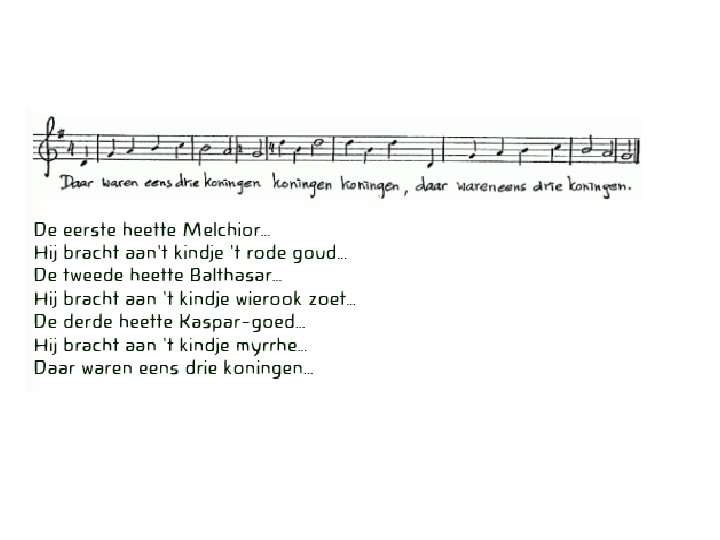 Daar waren eens drie koningen koningen koningen, daar waren eens drie koningen.
De eerste heette Melchior...
Hij bracht aan't kindje 't rode goud...
De tweede heette Balthasar...
Hij bracht aan 't kindje wierook zoet...
De derde heette Kaspar-goed...
Hij bracht aan 't kindje myrrhe...
Daar waren eens drie koningen...